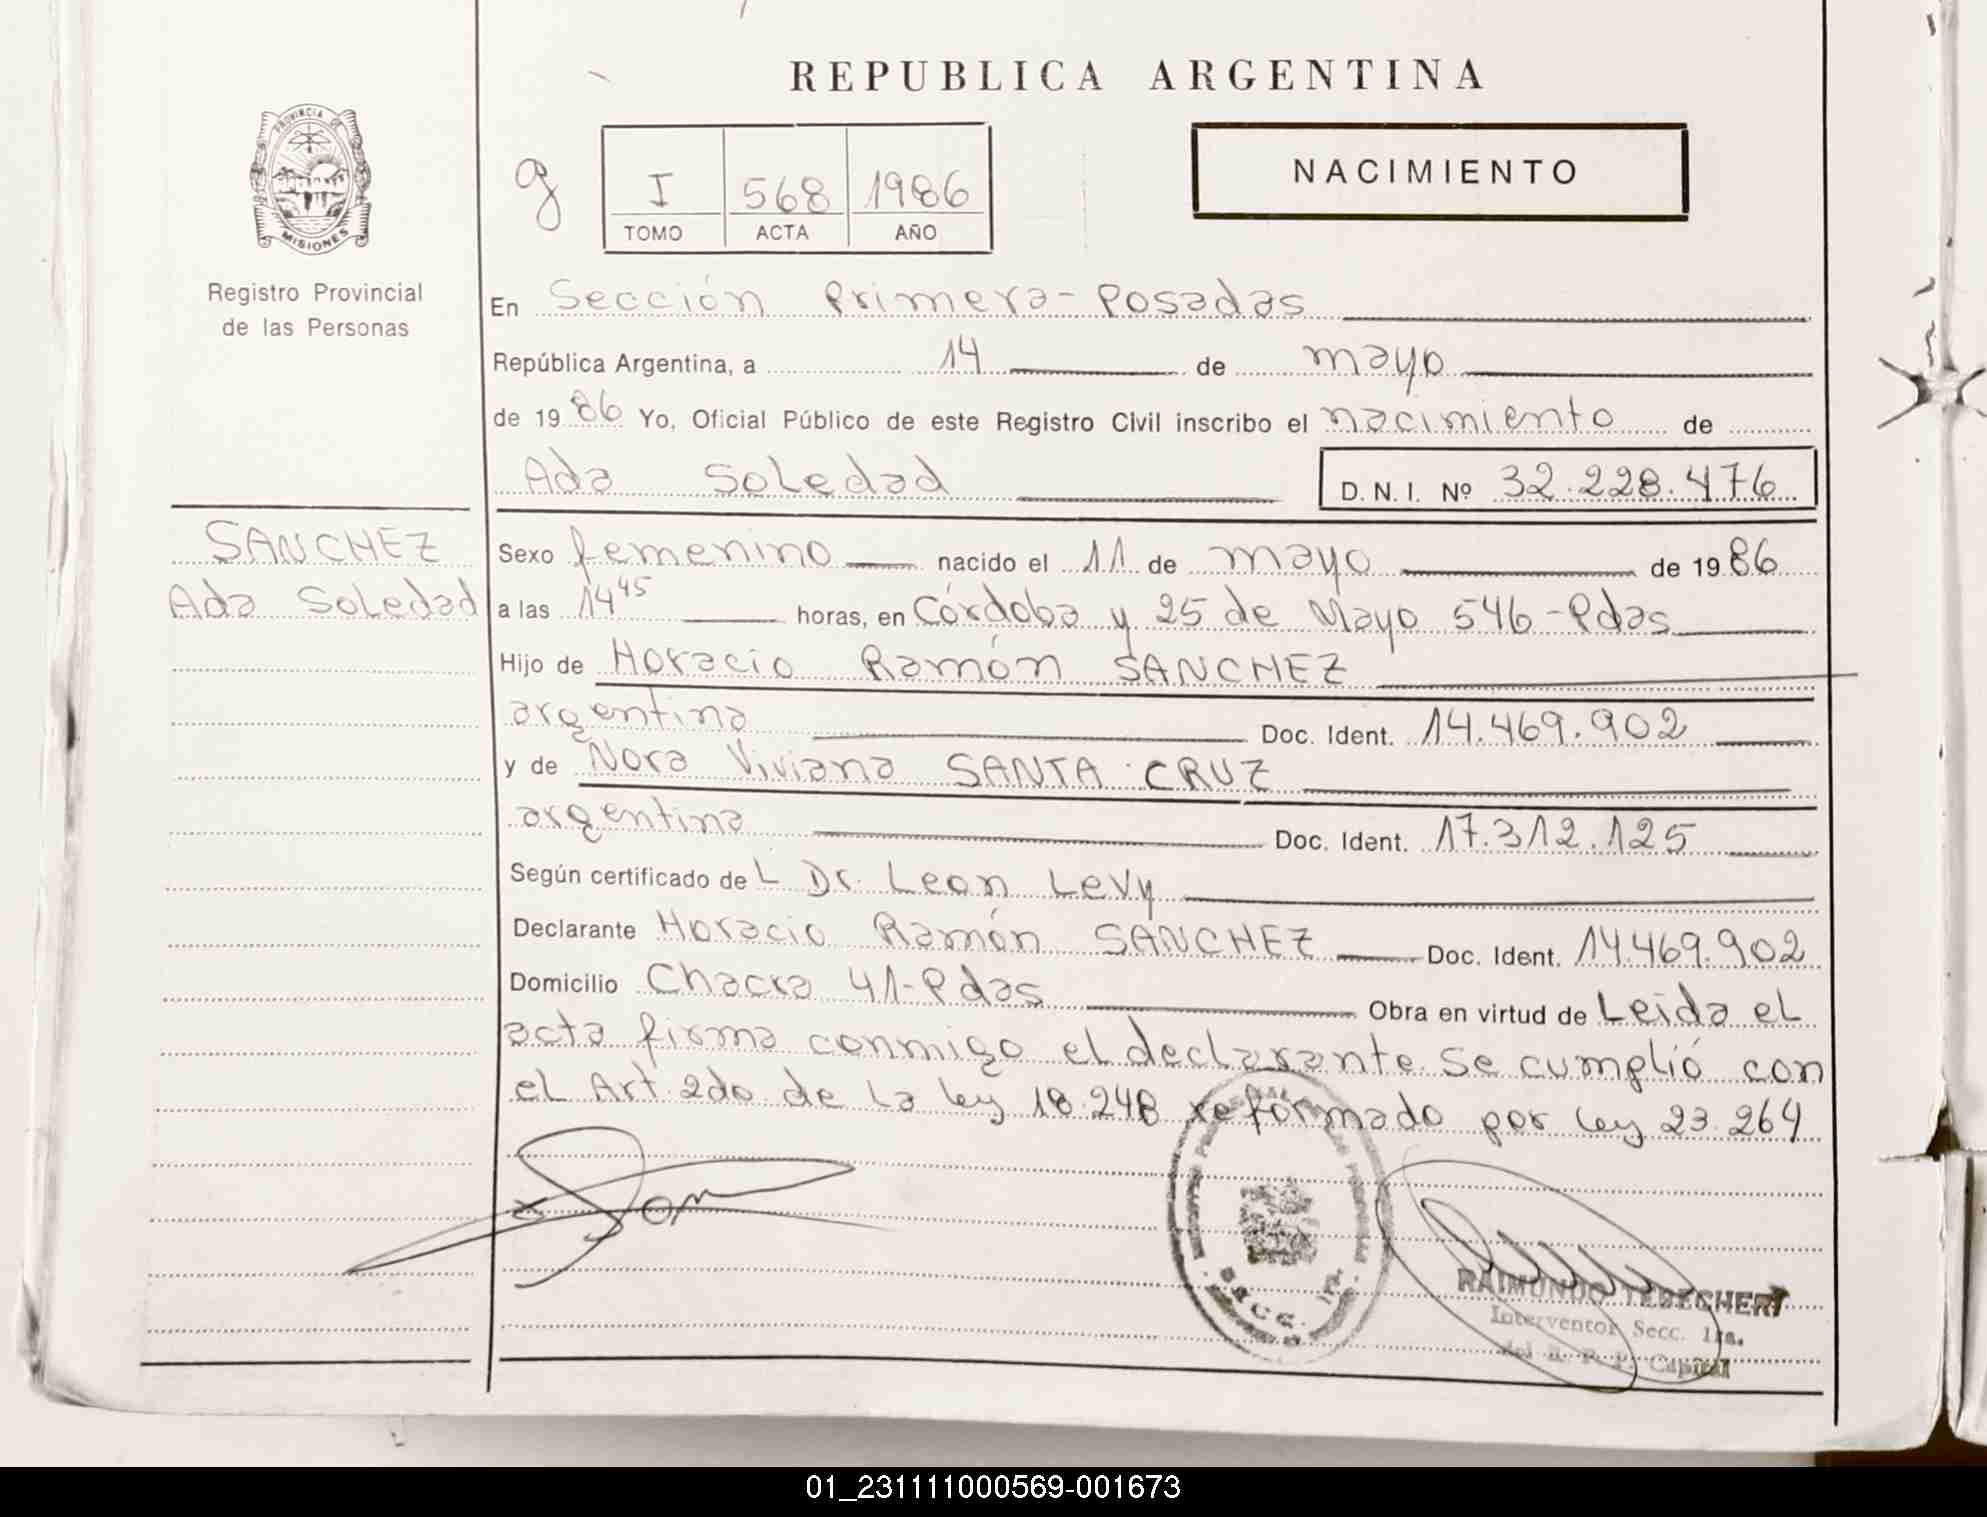 REPUBLICA ARGENTINA
PROVINCIA DE
MISIONES
Registro Provincial
de las Personas
g
I 568 1986
TOMO ACTA AÑO
NACIMIENTO
En Sección Primera - Posadas
República Argentina, a 14 de mayo
de 1986 Yo, Oficial Público de este Registro Civil inscribo el nacimiento de
Ada Soledad D. N. I. Nº 32.228.476
SANCHEZ
Ada Soledad
Sexo femenino nacido el 11 de mayo de 1986
a las 14 45 horas, en Córdoba y 25 de Mayo 546 - Pdas
Hijo de Horacio Ramón SANCHEZ
argentina Doc. Ident. 14.469.902
y de Nora Viviana SANTA CRUZ
argentina Doc. Ident. 17.312.125
Según certificado del Dr. Leon Levy
Declarante Horacio Ramón SANCHEZ Doc. Ident. 14.469.902
Domicilio Chacra 41 - Pdas Obra en virtud de Leida el
acta firma conmigo el declarante se cumplió con
el Art 2do de la ley 18.248 reformado por ley 23.264
SECC. 1ra.
RAIMUNDO
Interventor Secc. 1ra.
del R. P. P. Capital
01_231111000569-001673